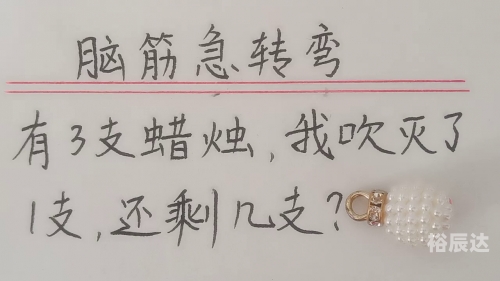 脑筋急转弯
有3支蜡烛,我吹灭了
1支,还剩几支?
裕辰达